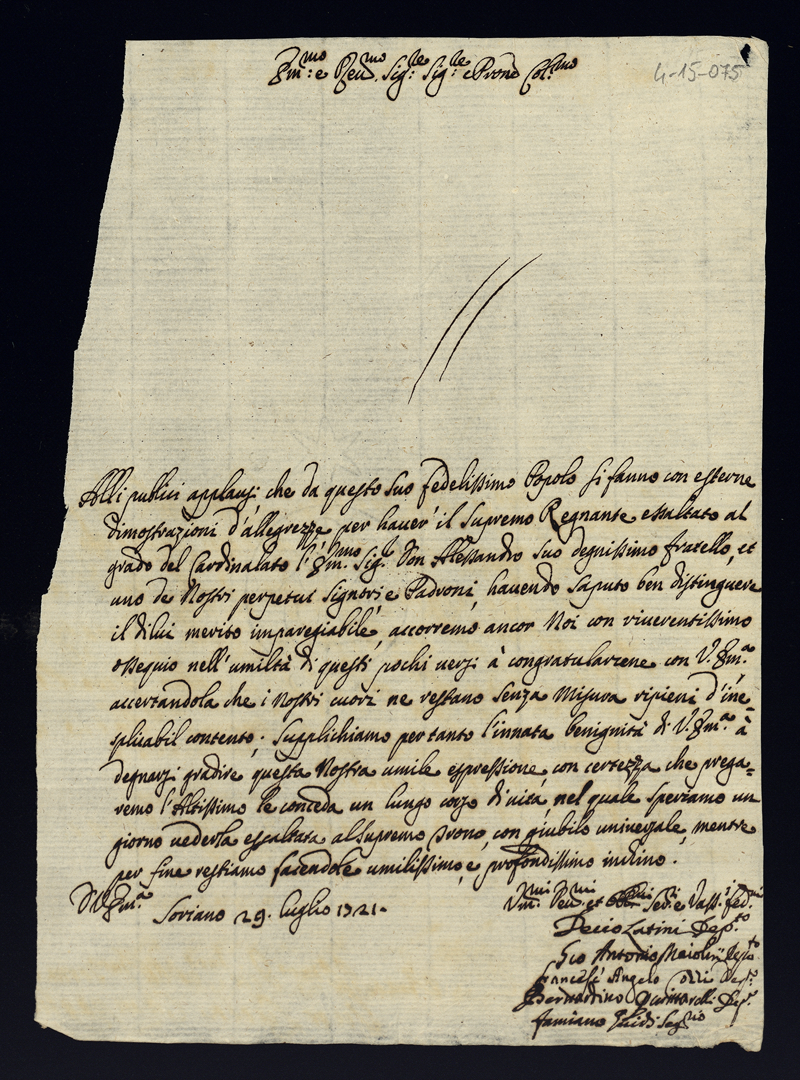 Em:mo e Reu.mo Sig:re Sig:re e Prone Col:mo
4-15-075
Alli publici applausi, che da questo suo fedelissimo Popolo si fanno con esterne
dimostrazioni d'allegrezze per hauer' il supremo Regnante essaltato al
grado del Cardinalato l'Em:mo Sig.r Don Alessandro suo degnissimo fratello, et
uno de Nostri perpetui Signori e Padroni, hauendo saputo ben distinguere
il di lui merito impareggiabile, accorremo ancor Noi con riuerentissimo
ossequio nell'umiltà di questi pochi uersi à congratularcene con V. Em:a
accertandola che i Nostri cuori ne restano senza Misura ripieni d'ine=
splicabil contento; supplichiamo per tanto l'innata benignità di V. Em:a à
degnarsi gradire questa Nostra umile espressione, con certezza che prega=
remo l'Altissimo le conceda un lungo corso di uita, nel quale speriamo un
giorno uederla essaltata al supremo Trono, con giubilo uniuersale, mentre
per fine restiamo facendole umilissimo, e profondissimo inchino.
D V. Em:a
Soriano 29. luglio 1721.
Vm:mi Deu:mi et Ser:i e Vass:i fed:mi
Decio Latini Dep:to
Gio Antonio Dep:to
Francesc' Angelo Dep:to
Bernardino Dep:to
Famiano Seg:rio